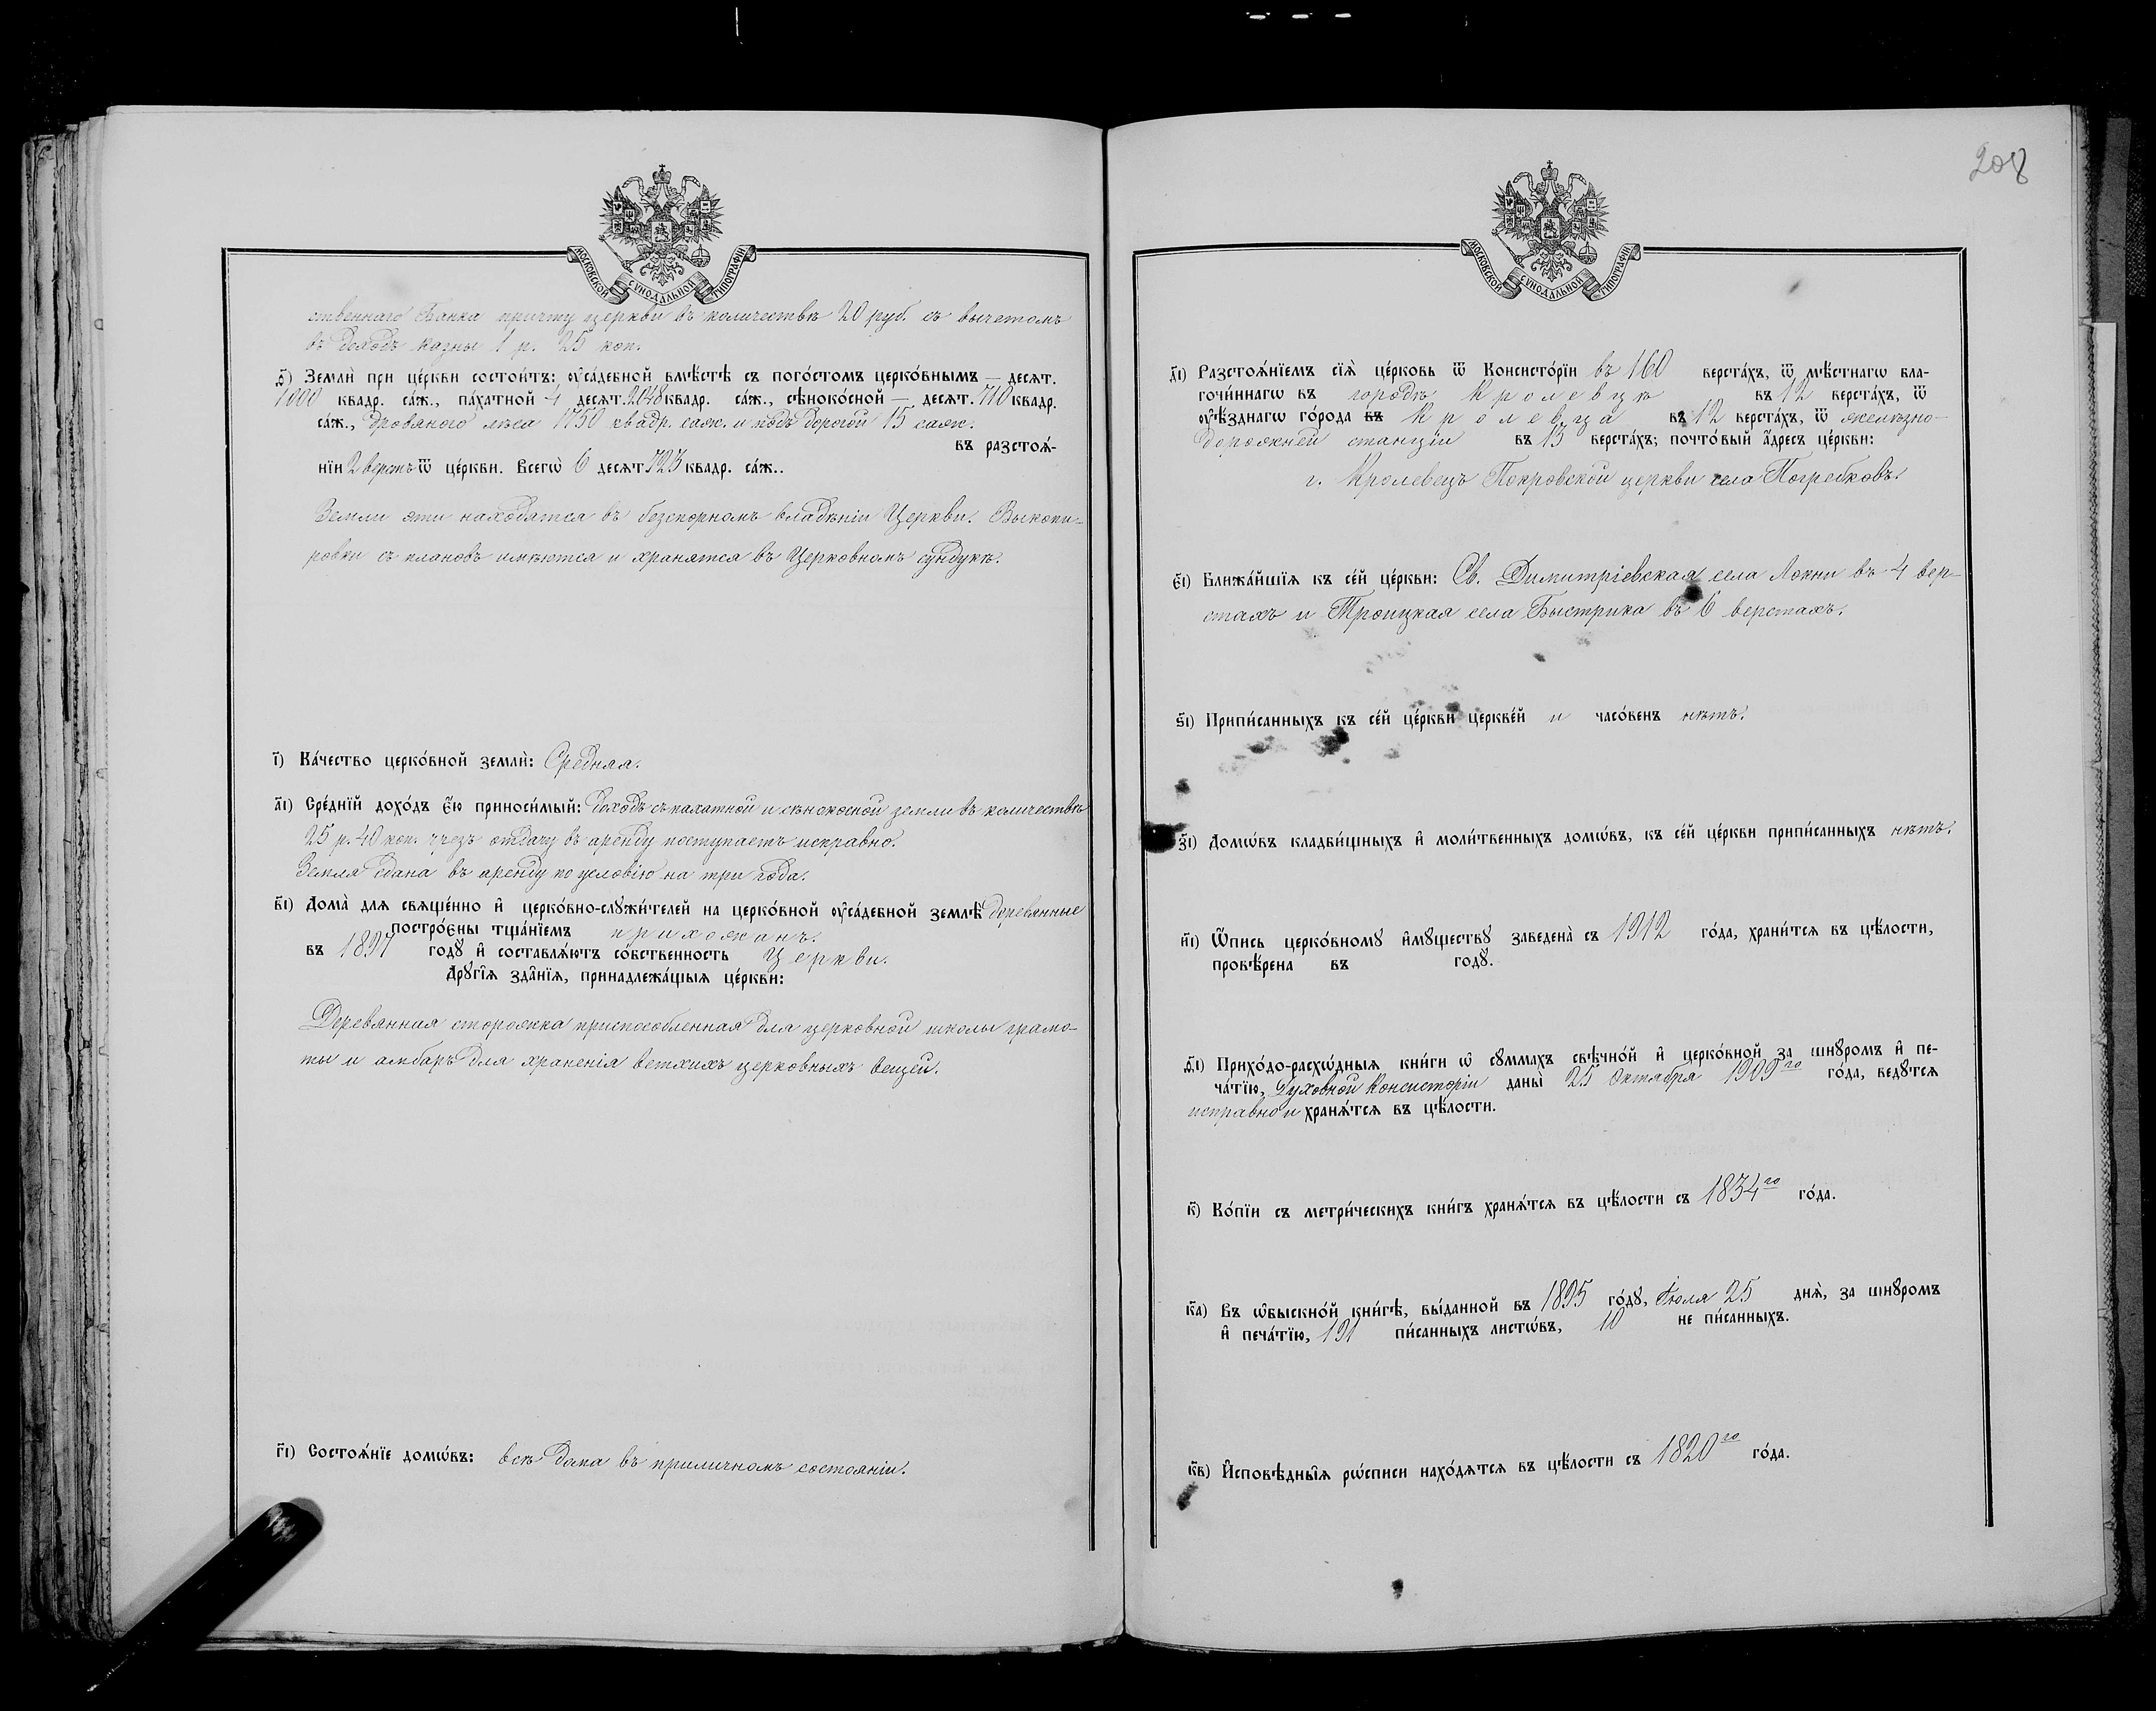 МОСКОВСКОЙ СѴНОДАЛЬНОЙ ТИПОГРАФІИ
ственнаго Банка причту церкви въ количествѣ 20 руб. съ вычетомъ
въ доходъ казны 1 р. 25 коп.
ѳ҃) Землѝ при це́ркви состои́тъ: ᲂу҆са́дебной вмѣ́стѣ съ пого́стомъ церко́внымъ — десят.
1000 квадр. са́ж., па́хатной 4 десят. 2048 квадр. са́ж., сѣноко́сной — десят. 710 квадр.
са́ж., дровяного лѣса 1750 квадр. саж. и подъ дорогой 15 саж.
въ разстоѧ́-
нїи 2 верстъ ѿ це́ркви. Всегѡ̀ 6 десят. 723 квадр. са́ж..
Земли эти находятся въ безспорномъ владѣніи Церкви. Выкопи-
ровки съ плановъ имѣются и хранятся въ Церковномъ сундукѣ.
і҃) Ка́чество церко́вной землѝ: Средняя.
а҃і) Сре́днїй дохо́дъ є҆́ю приноси́мый: доходъ съ пахатной и сѣнокосной земли въ количествѣ
25 р. 40 коп. чрезъ отдачу въ аренду поступаетъ исправно.
Земля сдана въ аренду по условію на три года.
в҃і) Дома̀ для свѧще́нно и҆ церко́вно-слꙋжи́телей на церко́вной ᲂу҆са́дебной землѣ̀ деревянные
постро́єны тща́нїемъ прихожанъ.
въ 1897 годꙋ̀ и҆ составлѧ́ютъ со́бственность Церкви.
Дрꙋгі̑ѧ зда̑нїѧ, принадлежа́щыѧ це́ркви:
Деревянная сторожка приспособленная для церковной школы грамо-
ты и амбаръ для храненія ветхихъ церковныхъ вещей.
г҃і) Состоѧ́нїе домѡ́въ: всѣ дома въ приличномъ состояніи.
208
МОСКОВСКОЙ СѴНОДАЛЬНОЙ ТИПОГРАФІИ
д҃і) Разстоѧ́нїемъ сїѧ̀ це́рковь ѿ Консисто́рїи въ 160 верста́хъ, ѿ мѣ́стнагѡ бла-
гочи́ннагѡ въ городѣ Кролевцѣ въ 12 верста́хъ, ѿ
ᲂу҆ѣ́зднагѡ го́рода въ Кролевца въ 12 верста́хъ, ѿ желѣзно-
дорожней станціи въ 13 верста́хъ; почто́вый а҆́дресъ це́ркви:
г. Кролевецъ Покровской церкви села Погребковъ.
є҃і) Ближа́йшїѧ къ се́й це́ркви: Св. Димитріевская села Локни въ 4 вер-
стахъ и Троицкая села Быстрика въ 6 верстахъ.
ѕ҃і) Припи́санныхъ къ се́й це́ркви церкве́й и часо́венъ нѣтъ.
з҃і) Домѡ́въ кладби́щныхъ и҆ моли́твенныхъ домѡ́въ, къ се́й це́ркви припи́санныхъ нѣтъ.
и҃і) Ѡ҆́пись церко́вномꙋ и҆мꙋ́ществꙋ заведена̀ съ 1912 го́да, храни́тсѧ въ цѣ́лости,
провѣ́рена въ годꙋ̀.
ѳ҃і) Прихо́до-расхѡ́дныѧ кни́ги ѡ҆ сꙋ́ммахъ свѣчно́й и҆ церко́вной за шнꙋро́мъ и҆ пе-
ча́тїю, Духовной Консисторіи даны̀ 25 Октября 1909го го́да, ведꙋ́тсѧ
исправно и хранѧ́тсѧ въ цѣ́лости.
к҃) Ко́пїи съ метри́ческихъ кни́гъ хранѧ́тсѧ въ цѣ́лости съ 1834го го́да.
к҃а) Въ ѡ҆быскно́й кни́гѣ, вы́данной въ 1895 го́дꙋ, Іюля 25 днѧ̀, за шнꙋро́мъ
и҆ печа́тїю, 191 пи́санныхъ листѡ́въ, 10 не пи́санныхъ.
к҃в) И҆сповѣ́дныѧ рѡ́списи нахо́дѧтсѧ въ цѣ́лости съ 1820го го́да.